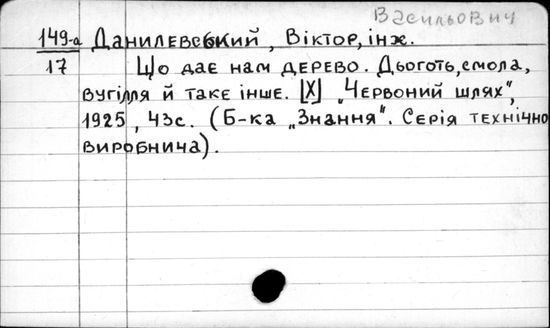 Васильович
149-а Данилевський, Віктор, інж.
17 Що дає нам дерево. Дьоготь, смола,
вугілля й таке інше. [Х] „Червоний шлях",
1925, 43с. (Б-ка „Знання". Серія технічно
виробнича).